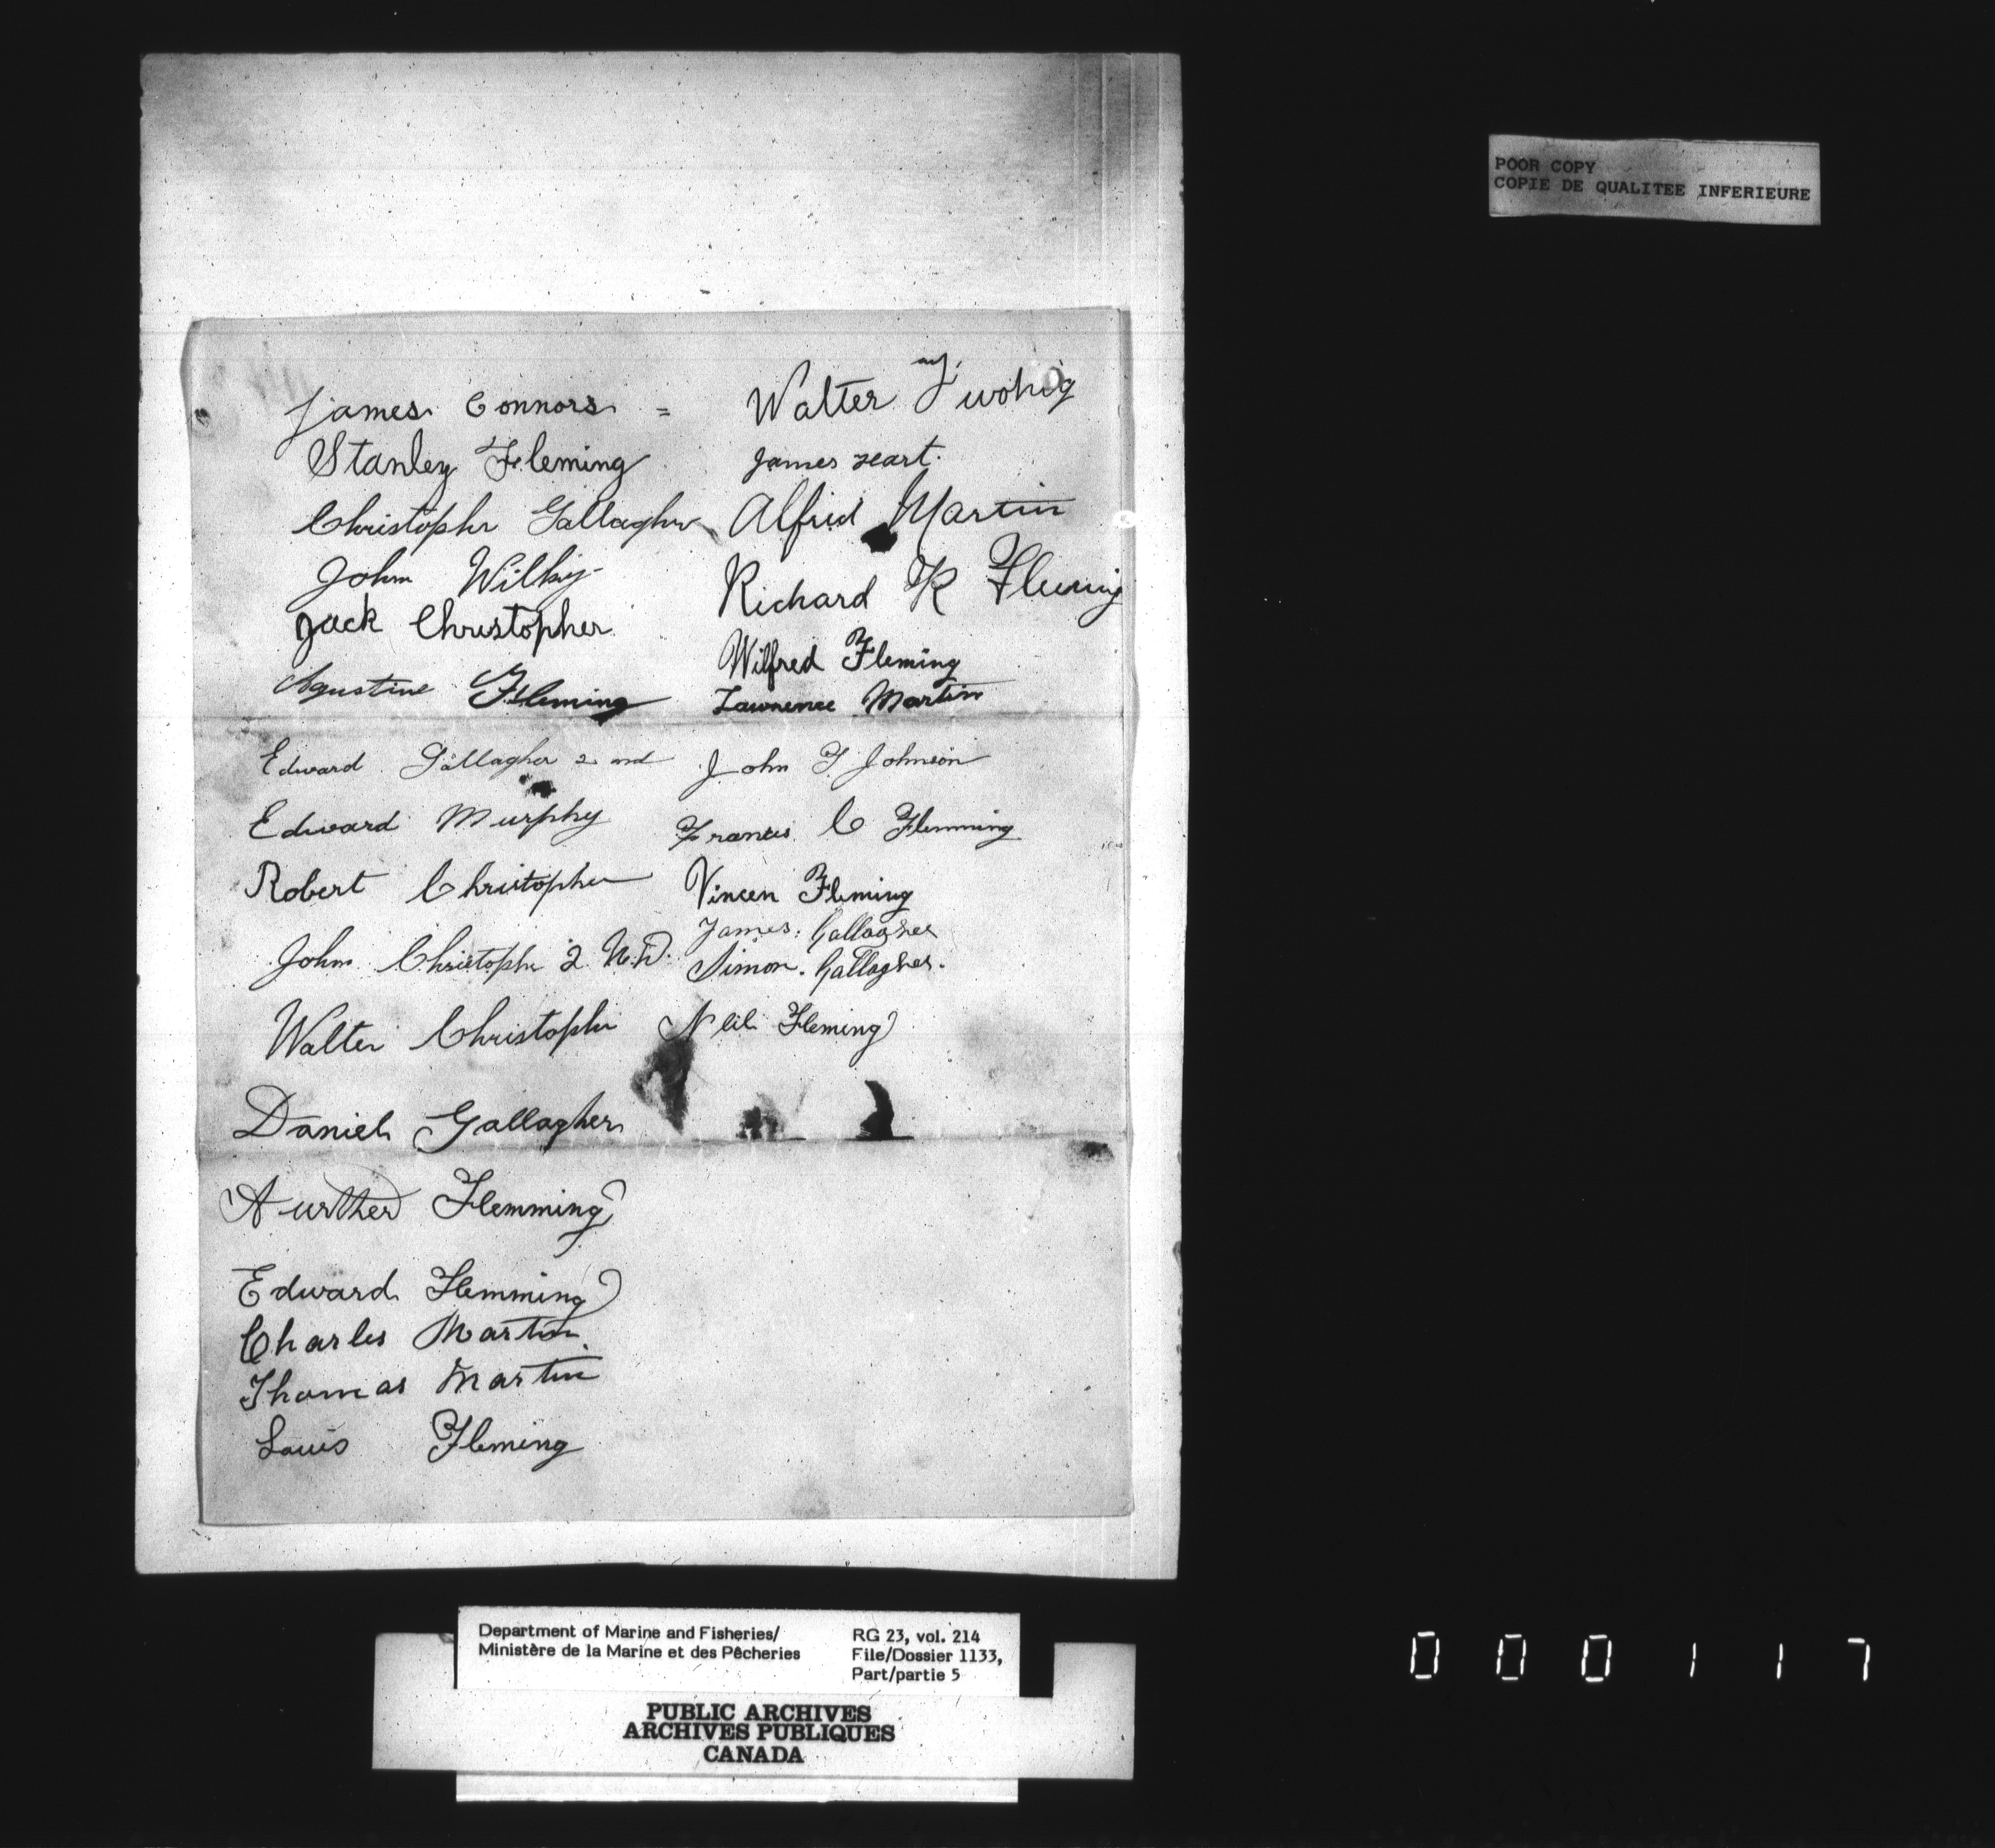 James Connors =
Stanley Fleming
Christopher Gallagher
John Wilky
Jack Christopher
Agustine Fleming
Edward Gallagher 2nd
Edward Murphy
Robert Christopher
John Christophe 2 N.D.
Walter Christophe
Daniel Gallagher
Aurther Flemming
Edward Flemming
Charles Martin
Thomas Martin
Louis Fleming
Walter Twohig
James Heart.
Alfrid Martin
Richard K Fleming
Wilfred Fleming
Lawrence Martin
John J Johnson
Francis C Flemming
Vincen Fleming
James. Gallagher
Simon. Gallagher.
Neil Fleming
POOR COPY
COPIE DE QUALITEE INFERIEURE
Department of Marine and Fisheries/
Ministère de la Marine et des Pêcheries
RG 23, vol. 214
File/Dossier 1133,
Part/partie 5
PUBLIC ARCHIVES
ARCHIVES PUBLIQUES
CANADA
000117